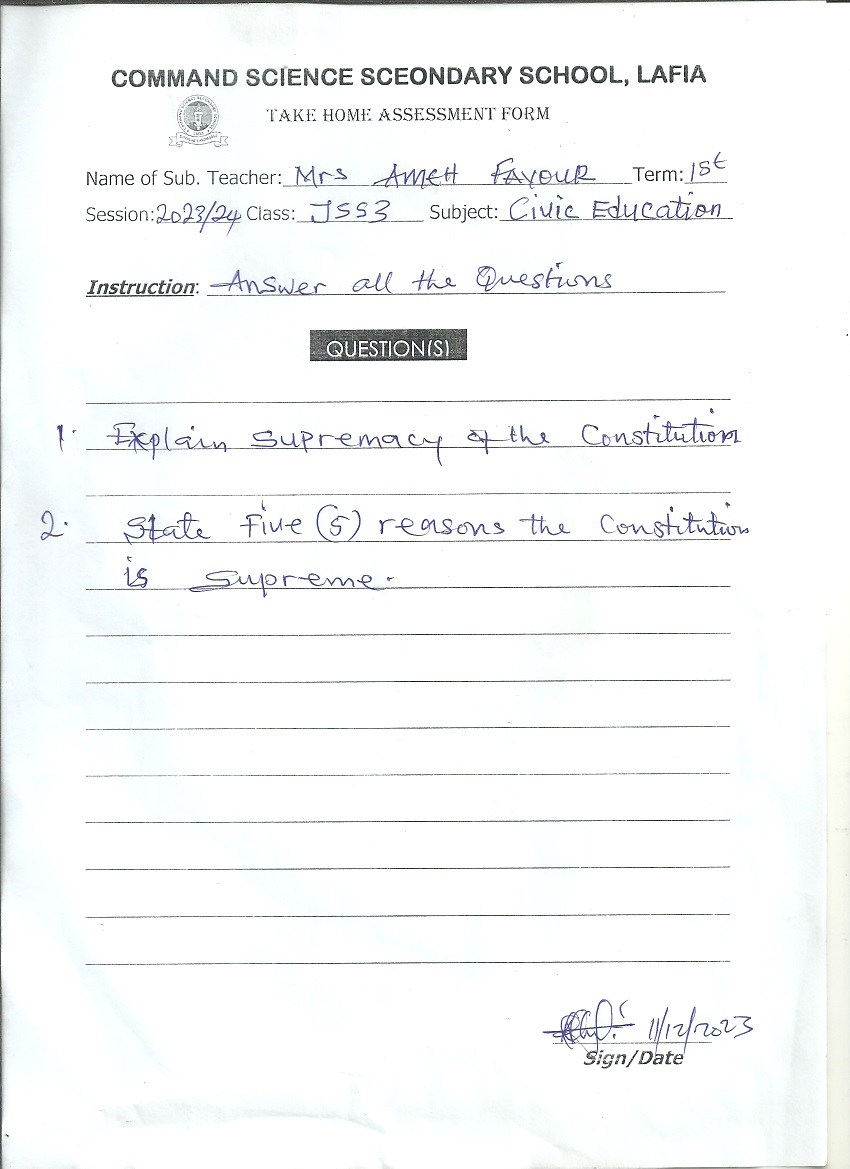 COMMAND SCIENCE SCEONDARY SCHOOL, LAFIA
TAKE HOME ASSESSMENT FORM
Name of Sub. Teacher: Mrs AMEH FAVOUR Term: 1st
Session: 2023/24 Class: JSS3 Subject: Civic Education
Instruction: Answer all the Questions
QUESTION(S)
1. Explain supremacy of the Constitution
2. State five (5) reasons the Constitution
is Supreme.
11/12/2023
Sign/Date